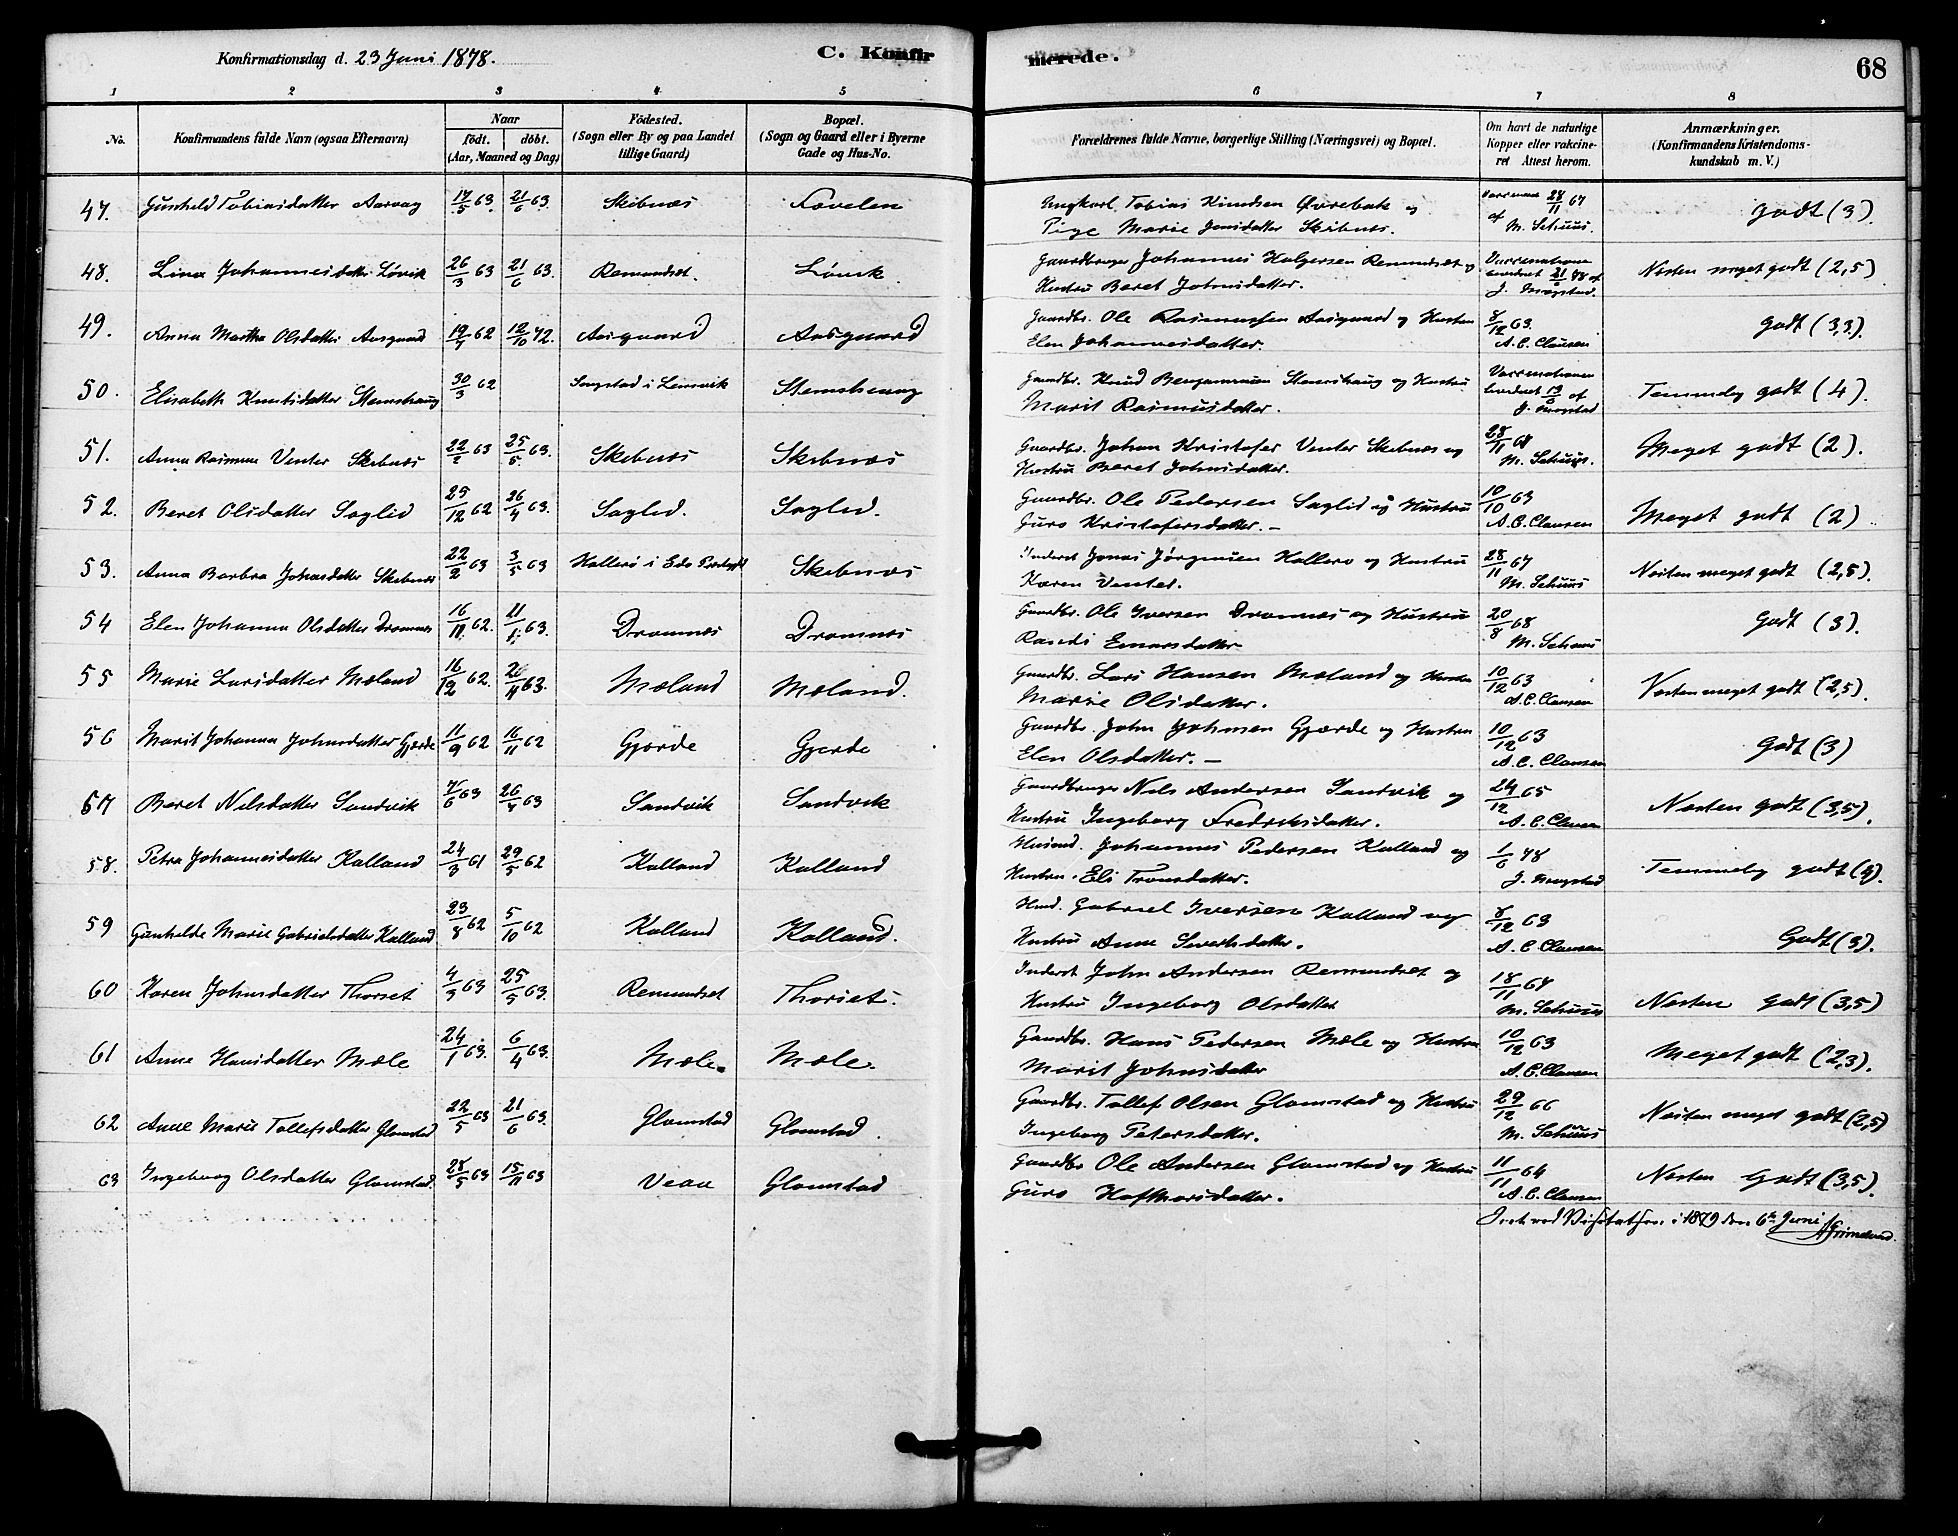 Konfirmationsdag d. 23 Juni 1878.
C. Konfir
merede.
68
1 2 3 4 5 6 7 8
No.
Konfirmandens fulde Navn (ogsaa Efternavn)
Naar
födt. döbt.
(Aar, Maaned og Dag)
Födested.
(Sogn eller By og paa Landet
tillige Gaard)
Bopæl.
(Sogn og Gaard eller i Byerne
Gade og Hus-No.
Forældrenes fulde Navne, borgerlige Stilling (Næringsvei) og Bopæl.
Om havt de naturlige
Kopper eller vakcine-
ret Attest herom.
Anmærkninger.
(Konfirmandens Kristendoms-
kundskab m. V.)
47. Gunhild Tobiasdatter Aarvag 17/5 63. 21/6 63. Skibnæs Fovelen
Ungkarl Tobias Knudsen Øvrebak og
Pige Marie Jonsdatter Skibnæs.
28/11 67
af
M. Schuus.
Godt (3).
48. Lina Johannesdatter Løvik 26/3 63 21/6 63. Remundset. Løvik
Gaardbruger Johannes Holgersen Remundset og
Hustru Beret Johnsdatter.
J. Mogstad.
Næsten meget godt (2,5)
49. Anna Martha Olsdatter Aasgaard 19/7 62 12/10 72. Aasgaard Aasgaard
Gaardbr. Ole Rasmussen Aasgaard og Hustru
Elen Johannesdatter.
8/12 63.
A. C. Clausen
Godt (3,3).
50. Elisabeth Knutsdatter Stemshaug 30/3 62 Sognstad i Leinsvik Stemshaug
Gaardbr. Knud Benjaminsen Stemshaug og Hustru
Marit Rasmusdatter.
J. Mogstad
Temmelig godt (4).
51. Anna Rasmine Venter Skibnæs 22/2 63 25/5 63. Skibnæs Skibnæs
Gaardbr. Johan Kristofer Venter Skibnæs og
Hustru Beret Johnsdatter.
28/11 67
M. Schuus.
Meget godt (2).
52. Beret Olsdatter Saglid 25/12 62 26/4 63. Saglid. Saglid.
Gaardbr. Ole Pedersen Saglid og Hustru
Guro Kristofersdatter. –
10/10 63
A. C. Clausen
Meget godt (2)
53. Anna Barbra Johnsdatter Skibnæs 22/2 63 3/5 63 Hallerø i Edø Præstegjæld Skibnæs
Inderst Jonas Jørgensen Hallerø og Hustru
Karen Venter.
28/11 67
M. Schuus
Næsten meget godt (2,5).
54 Elen Johanna Olsdatter Dromnæs 16/11 62. 11/1 63. Dromnæs Dromnæs
Gaardbr. Ole Iversen Dromnæs og Hustru
Randi Einarsdatter
20/8 68
M. Schuus
Godt (3).
55 Marie Larsdatter Mæland 16/12 62. 26/4 63. Mæland Mæland.
Gaardbr. Lars Hansen Mæland og Hustru
Marie Olsdatter.
10/12 63
A. C. Clausen
Næsten meget godt (2,5).
56 Marit Johanna Johnsdatter Gjærde 11/9 62 16/11 62 Gjærde Gjerde
Gaardbr. John Johnsen Gjærde og Hustru
Elen Olsdatter. –
10/12 63
A. C. Clausen
Godt (3)
57 Beret Nilsdatter Sandvik 7/6 63 26/4 63 Sandvik Sandvik
Gaardbruger Nils Andersen Sandvik og
Hustru Ingeborg Fredriksdatter.
24/12 65
A. C. Clausen
Næsten godt (3,5).
58. Petra Johannesdatter Kalland 24/3 61 29/5 62 Kalland Kalland
Husmd. Johannes Pedersen Kalland og
Hustru Eli Tronsdatter.
1/6 78
J. Mogstad
Temmelig godt (4).
59 Gunhilde Marie Gabrielsdatter Kalland 23/8 62 5/10 62 Kalland Kalland.
Husmd. Gabriel Iversen Kalland og
Hustru Anne Sivertsdatter.
8/12 63
A. C. Clausen
Godt (3).
60 Karen Johnsdatter Thorset 4/3 63 25/5 63. Remundset Thorset.
Inderst John Andersen Remundset og
Hustru Ingeborg Olsdatter
18/11 67
M. Schuus
Næsten godt (3,5)
61 Anne Hansdatter Mæle 24/1 63. 6/4 63. Mæle. Mæle.
Gaardbr. Hans Pedersen Mæle og Hustru
Marit Johnsdatter
10/12 63
A. C. Clausen
Meget godt (2,3).
62 Anne Marie Tollefsdatter Glomstad 22/5 63 21/6 63. Glomstad Glomstad.
Gaardbr. Tollef Olsen Glomstad og Hustru
Ingeborg Petersdatter.
29/12 66
M. Schuus
Næsten meget godt (2,5)
63 Ingeborg Olsdatter Glomstad. 28/5 63 15/11 63 Veaa Glomstad
Gaardbr Ole Andersen Glomstad og Hustru
Guro Hafthorsdatter.
11/11 64
A. C. Clausen
Næsten Godt (3,5).
ved Visitatsen i 1879 den 6te Juni